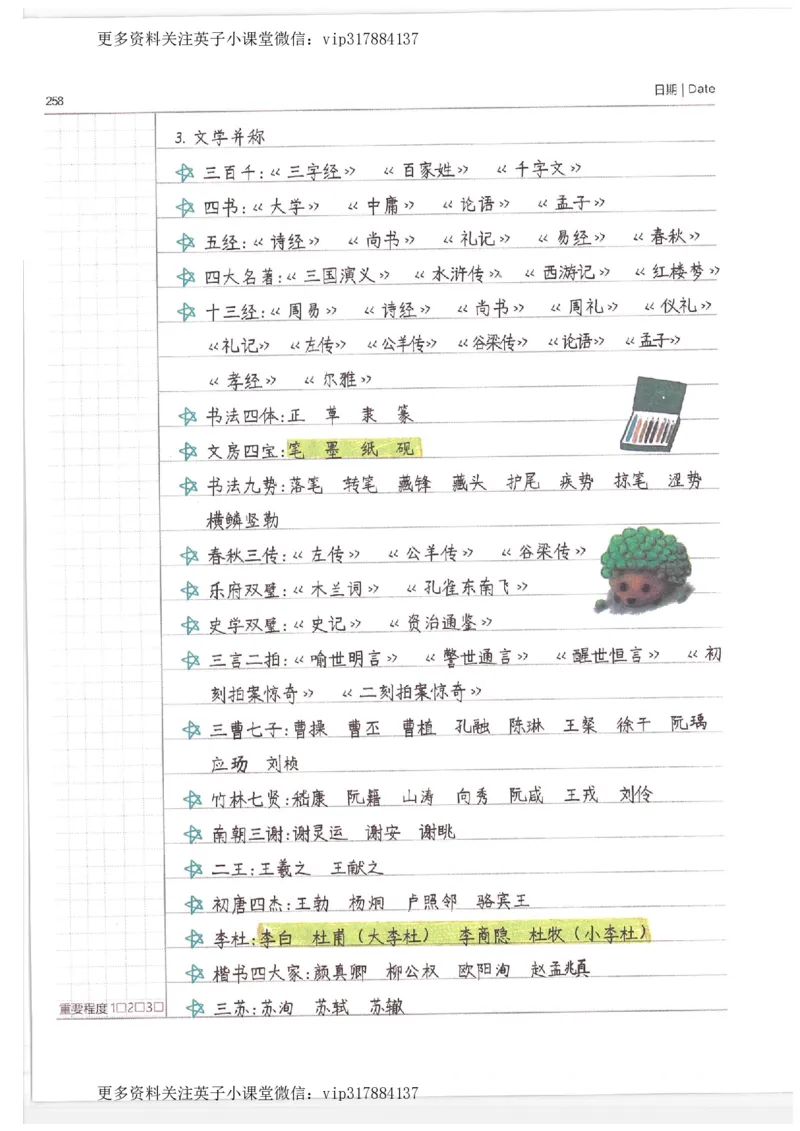 更多资料关注英子小课堂微信：vip317884137
258
日期 | Date
3. 文学并称
三百千:《三字经》 《百家姓》 《千字文》
四书:《大学》 《中庸》 《论语》 《孟子》
五经:《诗经》 《尚书》 《礼记》 《易经》 《春秋》
四大名著:《三国演义》 《水浒传》 《西游记》 《红楼梦》
十三经:《周易》 《诗经》 《尚书》 《周礼》 《仪礼》
《礼记》 《左传》 《公羊传》 《谷梁传》 《论语》 《孟子》
《孝经》 《尔雅》
书法四体:正 草 隶 篆
文房四宝:笔 墨 纸 砚
书法九势:落笔 转笔 藏锋 藏头 护尾 疾势 掠笔 涩势
横鳞竖勒
春秋三传:《左传》 《公羊传》 《谷梁传》
乐府双璧:《木兰词》 《孔雀东南飞》
史学双璧:《史记》 《资治通鉴》
三言二拍:《喻世明言》 《警世通言》 《醒世恒言》 《初
刻拍案惊奇》 《二刻拍案惊奇》
三曹七子:曹操 曹丕 曹植 孔融 陈琳 王粲 徐干 阮瑀
应玚 刘桢
竹林七贤:嵇康 阮籍 山涛 向秀 阮咸 王戎 刘伶
南朝三谢:谢灵运 谢安 谢眺
二王:王羲之 王献之
初唐四杰:王勃 杨炯 卢照邻 骆宾王
李杜:李白 杜甫（大李杜） 李商隐 杜牧（小李杜）
楷书四大家:颜真卿 柳公权 欧阳洵 赵孟兆真
重要程度 1□2□3□
三苏:苏洵 苏轼 苏辙
更多资料关注英子小课堂微信：vip317884137